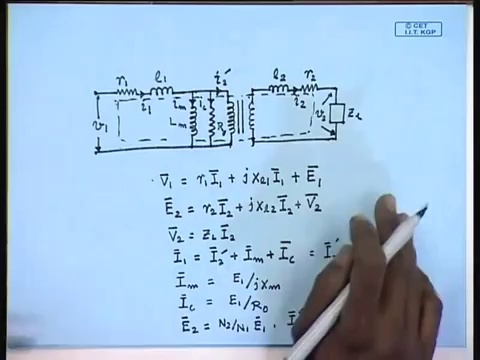 © CET
I.I.T. KGP
r₁ l₁ i₂′ l₂ r₂
v₁ i₁ iₘ Lₘ i_c R₀ i₂ v₂ Z_L
V̄₁ = r₁Ī₁ + jxₗ₁Ī₁ + Ē₁
Ē₂ = r₂Ī₂ + jxₗ₂Ī₂ + V̄₂
V̄₂ = Z_L Ī₂
Ī₁ = Ī₂′ + Īₘ + Ī_c = Ī₂′
Īₘ = E₁/jxₘ
Ī_c = E₁/R₀
Ē₂ = N₂/N₁ Ē₁ .